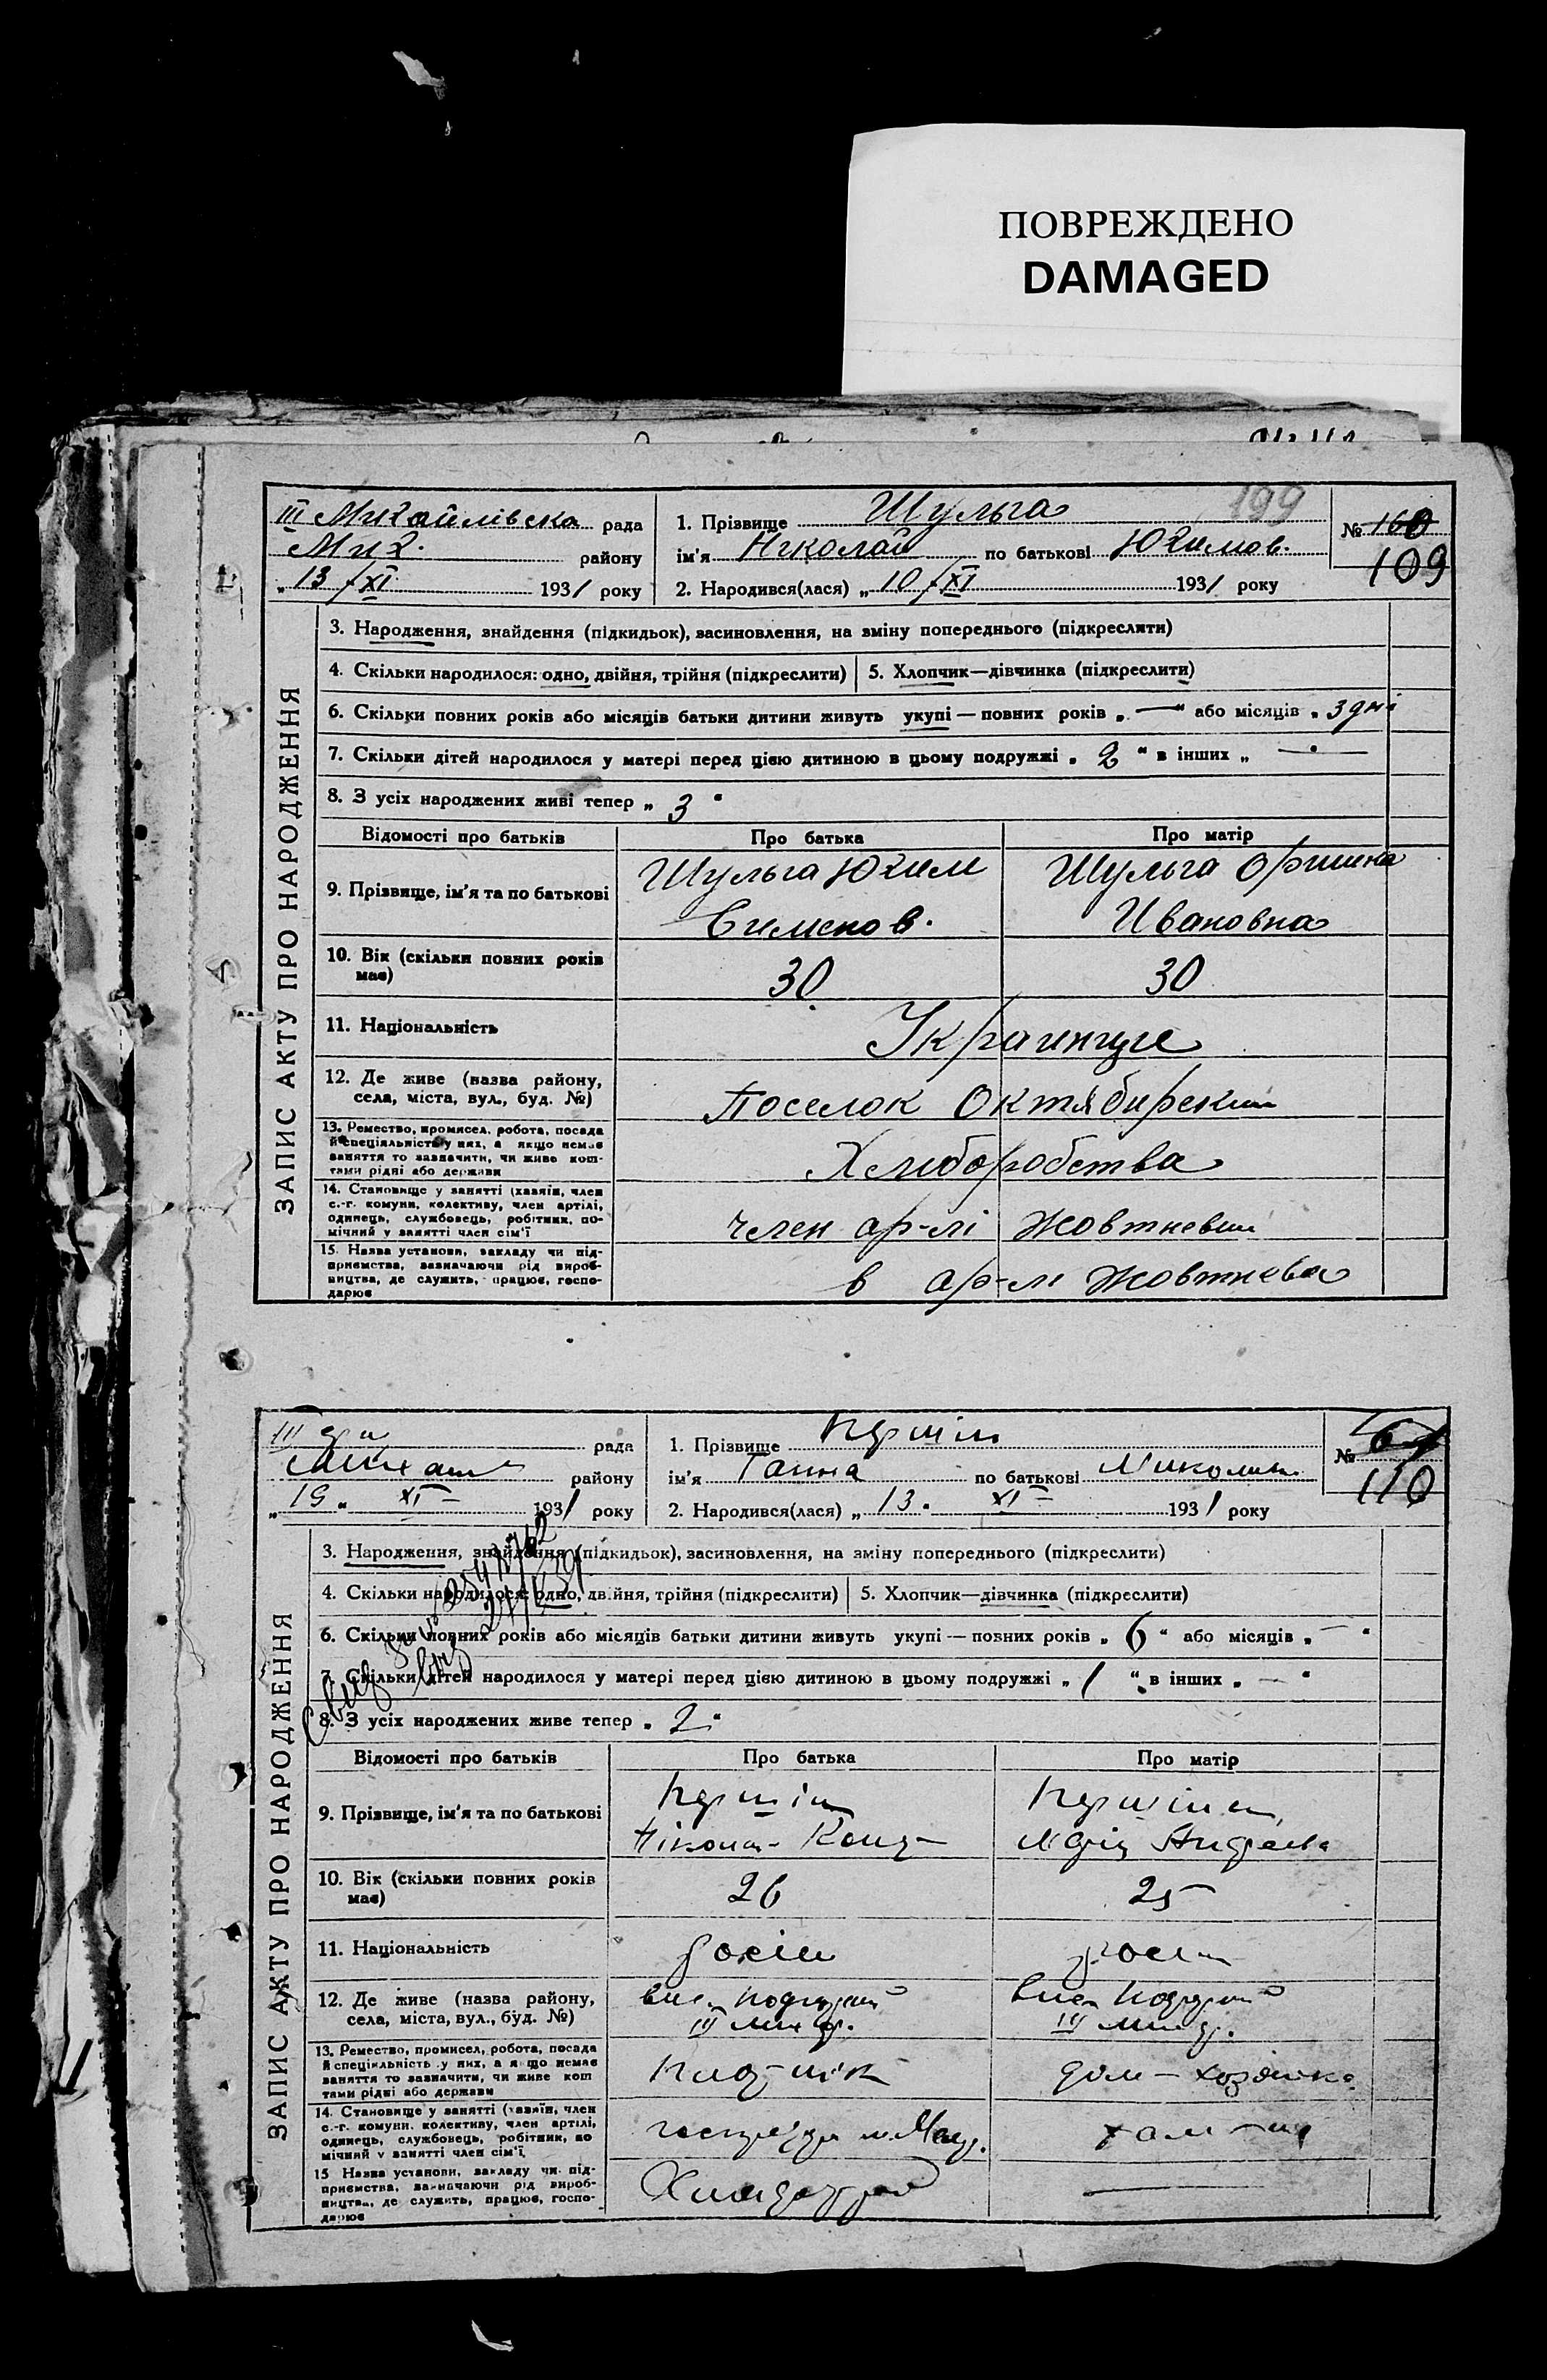 ПОВРЕЖДЕНО
DAMAGED
199
III Михайлівска рада
Мих. району
„13/XI 1931 року
1. Прізвище Шульга
ім'я Николай по батькові Юхимов.
2. Народився(лася) „10/XI 1931 року
№ 160
109
ЗАПИС АКТУ ПРО НАРОДЖЕННЯ
3. Народження, знайдення (підкидьок), засиновлення, на зміну попереднього (підкреслити)
4. Скільки народилося: одно, двійня, трійня (підкреслити)
5. Хлопчик—дівчинка (підкреслити)
6. Скільки повних років або місяців батьки дитини живуть укупі — повних років „ — " або місяців „ 3 дні
7. Скільки дітей народилося у матері перед цією дитиною в цьому подружжі „ 2 " в інших „ —
8. З усіх народжених живі тепер „ 3 "
Відомості про батьків Про батька Про матір
9. Прізвище, ім'я та по батькові
Шульга Юхим
Сименов.
Шульга Оришка
Ивановна
10. Вік (скільки повних років
має)
30 30
11. Національність
Украинцы
12. Де живе (назва району,
села, міста, вул., буд. №)
Поселок Октябирский
13. Ремество, промисел, робота, посада
й спеціяльність у них, а якщо немає
заняття то зазначити, чи живе кош-
тами рідні або держави
Хлиборобства
14. Становище у занятті (хазяїн, член
с.-г. комуни, колективу, член артілі,
одинець, службовець, робітник, по-
мічний у занятті член сім'ї
член ар-лі Жовтневий
15. Назва установи, закладу чи під-
приємства, зазначаючи рід вироб-
ництва, де служить, працює, госпо-
дарює
в ар-лі Жовтнева
III рада
району
„19„ XI 1931 року
1. Прізвище
ім'я Ганна по батькові Миколаїв.
2. Народився(лася) „13„ XI 1931 року
№
110
ЗАПИС АКТУ ПРО НАРОДЖЕННЯ
3. Народження, знайдення (підкидьок), засиновлення, на зміну попереднього (підкреслити)
4. Скільки народилося: одно, двійня, трійня (підкреслити)
5. Хлопчик—дівчинка (підкреслити)
6. Скільки повних років або місяців батьки дитини живуть укупі — повних років „ 6 " або місяців „ — "
7. Скільки дітей народилося у матері перед цією дитиною в цьому подружжі „ 1 " в інших „ — "
8. З усіх народжених живе тепер „ 2 "
Відомості про батьків Про батька Про матір
9. Прізвище, ім'я та по батькові
10. Вік (скільки повних років
має)
26 25
11. Національність
12. Де живе (назва району,
села, міста, вул., буд. №)
13. Ремество, промисел, робота, посада
й спеціяльність у них, а якщо немає
заняття то зазначити, чи живе кош
тами рідні або держави
14. Становище у занятті (хазяїн, член
с.-г. комуни, колективу, член артілі,
одинець, службовець, робітник, по
мічний у занятті член сім'ї,
15 Назва установи, закладу чи під-
приємства, зазначаючи рід вироб-
ництва, де служить, працює, госпо-
дарює